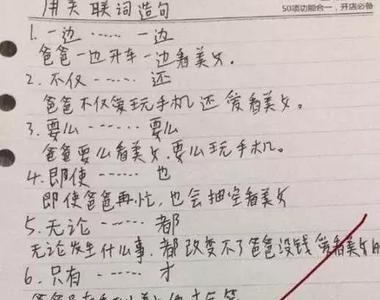 用关联词造句
50项功能合一，开店必备
1.一边……一边
爸爸一边开车一边看美女。
2.不仅……还
爸爸不仅爱玩手机还爱看美女。
3.要么……要么
爸爸要么看美女，要么玩手机。
4.即使……也
即使爸爸再忙，也会抽空看美女
5.无论……都
无论发生什么事，都改变不了爸爸没钱爱看美女的
6.只有……才
爸爸只有